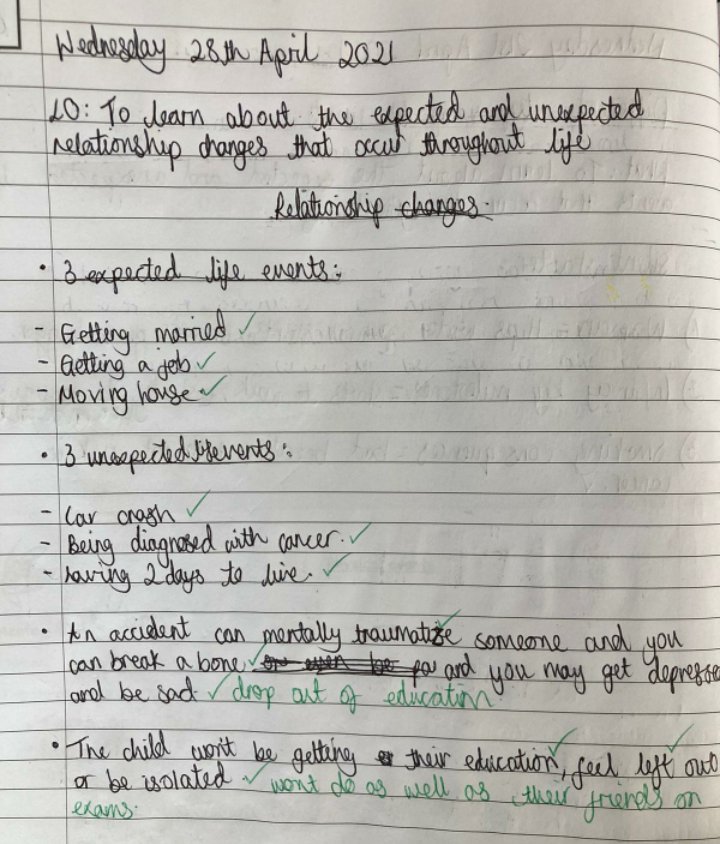 Wednesday 28th April 2021
LO: To learn about the expected and unexpected
relationship changes that occur throughout life
Relationship changes.
• 3 expected life events:
- Getting married ✓
- Getting a job ✓
- Moving house ✓
• 3 unexpected lifevents:
- Car crash ✓
- Being diagnosed with cancer. ✓
- having 2 days to live. ✓
• An accident can mentally traumatize ✓ someone and you
can break a bone, ✓ and you may get depresse
and be sad ✓ drop out of education.
• The child won't be getting their education, ✓ feel left out ✓
or be isolated ✓ wont do as well as their friends on
exams.